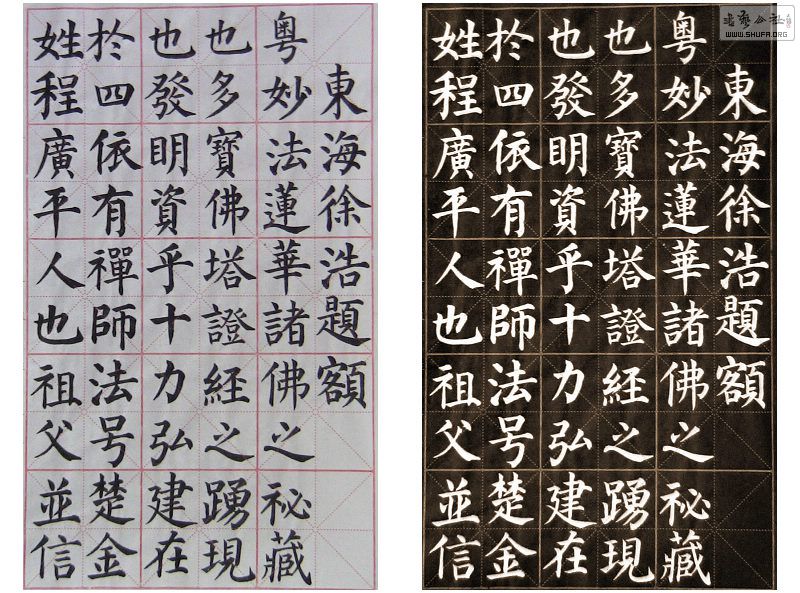 東海徐浩題額
粵妙法蓮華諸佛之祕藏
也多寶佛塔證經之踴現
也發明資乎十力弘建在
於四依有禪師法号楚金
姓程廣平人也祖父並信
東海徐浩題額
粵妙法蓮華諸佛之祕藏
也多寶佛塔證經之踴現
也發明資乎十力弘建在
於四依有禪師法号楚金
姓程廣平人也祖父並信
書藝公社
WWW.SHUFA.ORG